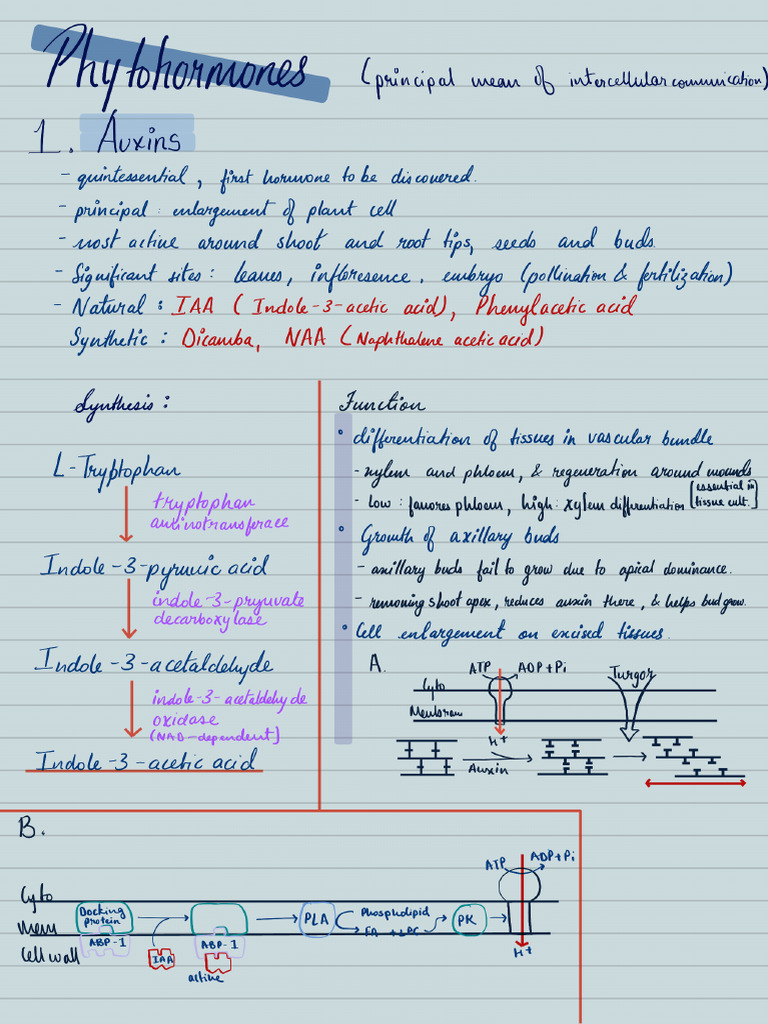 Phytohormones (principal mean of intercellular communication)
1. Auxins
- quintessential, first hormone to be discovered.
- principal : enlargement of plant cell
- most active around shoot and root tips, seeds and buds.
- Significant sites : leaves, infloresence, embryo (pollination & fertilization)
- Natural : IAA ( Indole-3-acetic acid), Phenylacetic acid
Synthetic : Dicamba, NAA ( Naphthalene acetic acid)
Synthesis :
L-Tryptophan
tryptophan
aminotransferace
Indole-3-pyruvic acid
indole-3-pryuvate
decarboxylase
Indole-3-acetaldehyde
indole-3-acetaldehyde
oxidase
(NAD-dependent)
Indole-3-acetic acid
Function
• differentiation of tissues in vascular bundle
- xylem and phloem, & regeneration around wounds
- low : favores phloem, high : xylem differentiation [essential in
tissue cult.]
• Growth of axillary buds
- axillary buds fail to grow due to apical dominance.
- removing shoot apex, reduces auxin there, & helps bud grow.
• Cell enlargement on excised tissues.
A.
ATP ADP+Pi Turgor
Cyto
Membram
H+
Auxin
B.
ATP ADP+Pi
Cyto
Mem
Cell wall
Docking
protein
ABP-1
IAA
ABP-1
active
PLA
Phospholipid
FA + LPC
PK
H+